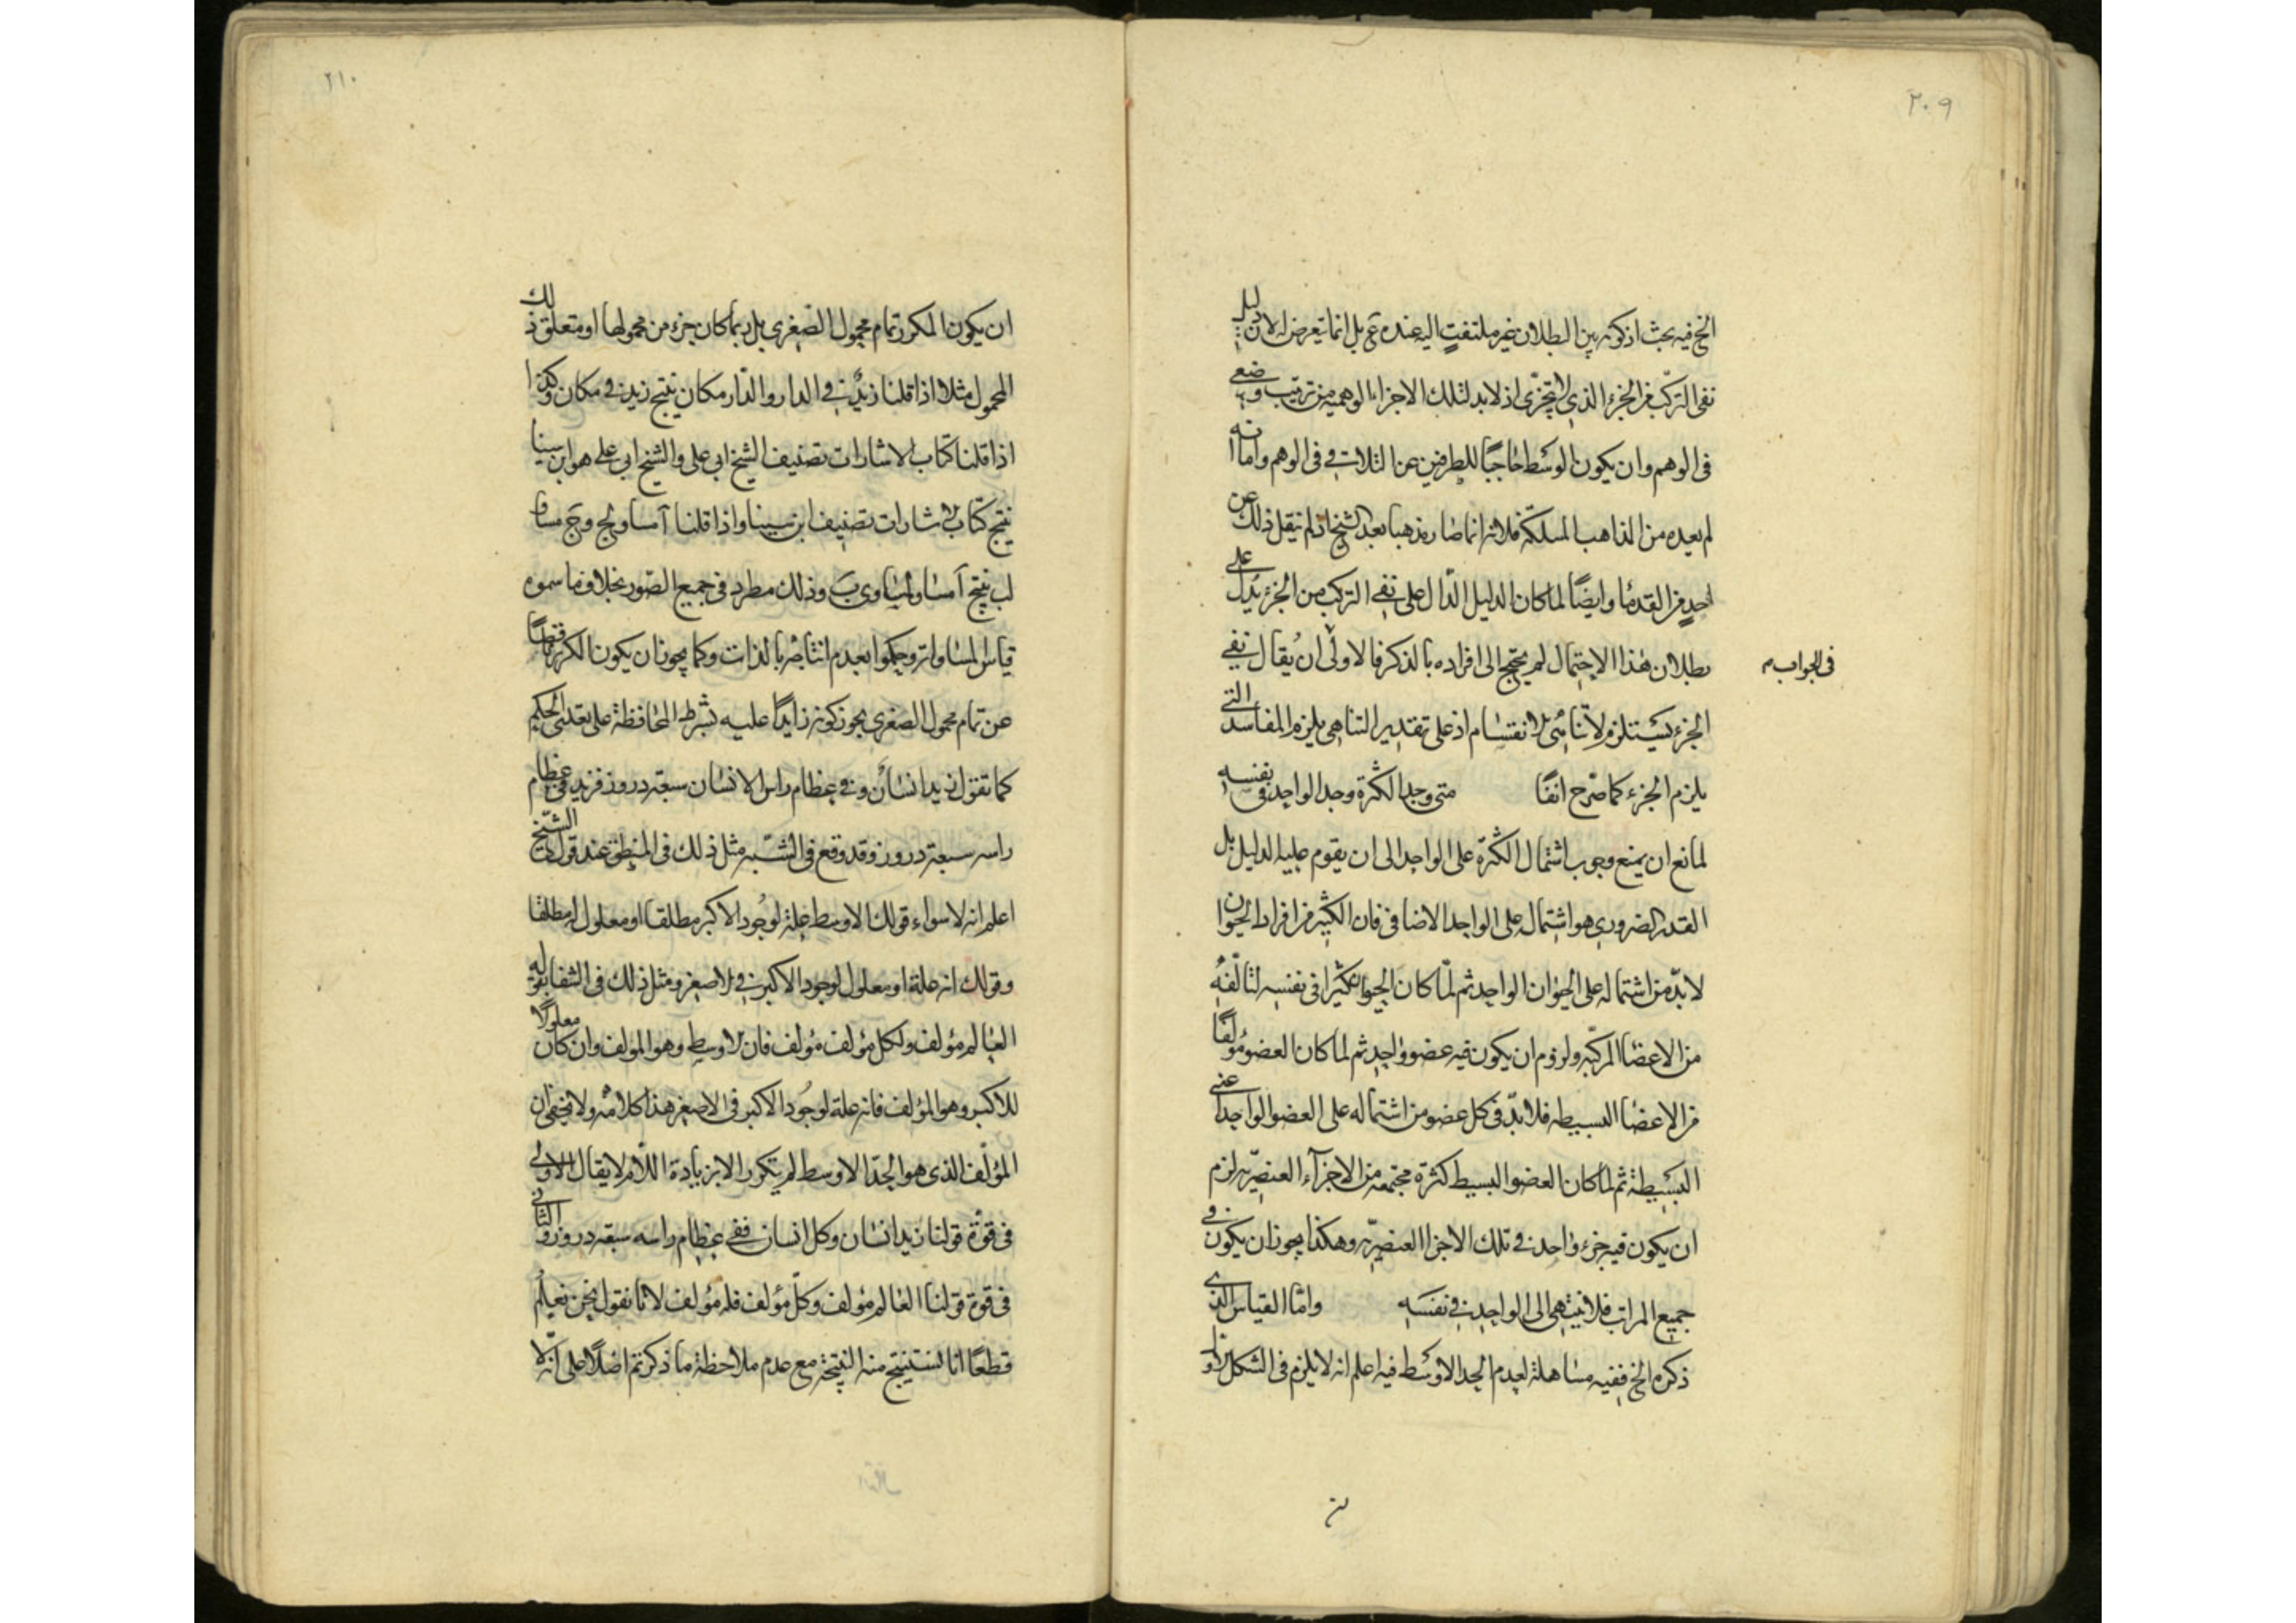 ٢٠٩
الخ فيه بحث اذ كونه بين البطلان غير ملتفت اليه عنده بل انما تعرض له لان دليل
نفى التركب من الجزء الذى لا يتجزى اذ لا بد لتلك الاجزاء الوهميه من ترتيب وضعى
فى الوهم وان يكون الوسط حاجبًا للطرفين عن التلاقى فى الوهم واما انه
لم يعده من المذاهب الممكنة فلانه انما صار مذهبا بعد الشيخ اذ لم ينقل ذلك عن
احدٍ من القدما وايضًا لما كان الدليل الدال على نفى التركب من الجزء يدل على
بطلان هذا الاحتمال لم يحتج الى افراده بالذكر فالاولى ان يُقال نفى
فى الجواب م
الجزء يستلزم لا تناهى الانقسام اذ على تقدير التناهى يلزم المفاسد التى
يلزم الجزء كما صرح انفًا متى وجد الكثرة وجد الواحد فى نفسه
لمانع ان يمنع وجوب اشتمال الكثرة على الواحد الى ان يقوم عليه الدليل بل
القدر الضرورى هو اشتماله على الواحد الاضافى فان الكثير من افراد الحيوان
لا بدّ من اشتماله على الحيوان الواحد ثم لمّا كان الحيوان كثيرًا فى نفسه لتالّفه
من الاعضا المركبة ولزوم ان يكون فيه عضو واحد ثم لما كان العضو مؤلفًا
من الاعضا البسيطه فلا بدّ فى كل عضو من اشتماله على العضو الواحد اعنى
البسيطة ثم لما كان العضو البسيط كثرة مجتمعه من الاجزآء العنصريّه لزم
ان يكون فيه جزء واحد فى تلك الاجزا العنصريّه وهكذا يجوز ان يكون فى
جميع المراتب فلا ينتهى الى الواحد فى نفسه وامّا القياس الذى
ذكره الخ ففيه مساهلة لعدم الحد الاوسط فيه اعلم انه لا يلزم فى الشكل الاول
٢١٠
ان يكون المكرر تمام محمول الصغرى بل ربما كان جزء من محمولها او متعلق ذلك
المحمول مثلا اذا قلنا زيدٌ فى الدار والدّار مكان ينتج زيد فى مكان وكذا
اذا قلنا كتاب الاشارات تصنيف الشيخ ابى على والشيخ ابى على هو ابن سينا
ينتج كتاب الاشارات تصنيف ابن سينا واذا قلنا آ مساو لج وج مساو
لب ينتج آ مساو لمساوى ب وذلك مطرد فى جميع الصّور بخلاف ما سموه
قياس المساواة وحكموا بعدم انتاجه بالذات وكما يجوز ان يكون المكرر ناقصًا
عن تمام محمول الصغرى يجوز كونه زايدًا عليه بشرط المحافظة على تعدى الحكم
كما تقول زيد انسان وفى عظام راس الانسان سبعة دروز فزيد فى عظام
راسه سبعة دروز وقد وقع فى الشبه مثل ذلك فى المنطق عند قول الشيخ
اعلم انه لا سواء قولك الاوسط علة لوجُود الاكبر مطلقا او معلول له مطلقا
وقولك انه علة او معلول لوجود الاكبر فى الاصغر ومثل ذلك فى الشفا بقوله
العالم مؤلف ولكل مؤلف مؤلف فان الاوسط وهو المؤلف وان كان معلولًا
للاكبر وهو المؤلف فانه علة لوجُود الاكبر فى الاصغر هذا كلامه ولا يخفى ان
المؤلّف الذى هو الحدّ الاوسط لم يتكرر الا بزيادة اللام لا يقال الاول
فى قوة قولنا زيد انسان وكل انسان ففى عظام راسه سبعة دروز والثانى
فى قوة قولنا العالم مؤلف وكلّ مؤلف فله مؤلف لانا نقول نحن نعلم
قطعًا انا نستنتج منه النتيجة مع عدم ملاحظة ما ذكرتم اصلًا على انّه لا